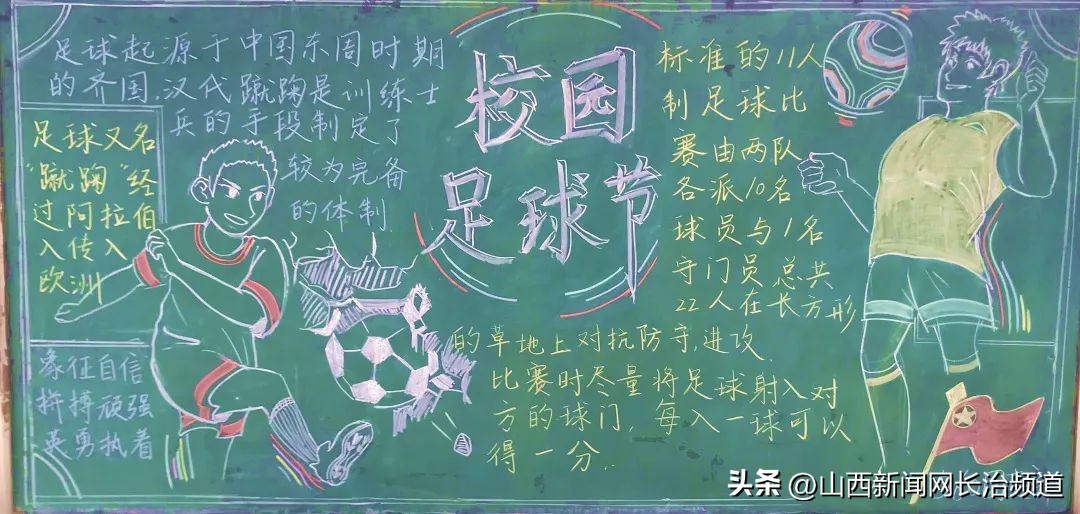 校园
足球节
足球起源于中国东周时期
的齐国.汉代蹴鞠是训练士
兵的手段制定了
较为完备
的体制
足球又名
“蹴鞠”经
过阿拉伯
人传入
欧洲
象征自信
拼搏顽强
英勇执着
标准的11人
制足球比
赛由两队
各派10名
球员与1名
守门员总共
22人在长方形
的草地上对抗防守,进攻.
比赛时尽量将足球射入对
方的球门,每入一球可以
得一分..
头条@山西新闻网长治频道